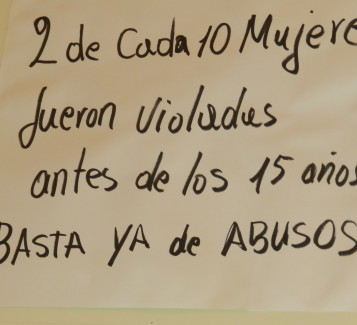 2 de Cada 10 Mujere
fueron Violadas
antes de los 15 años
BASTA YA de ABUSOS